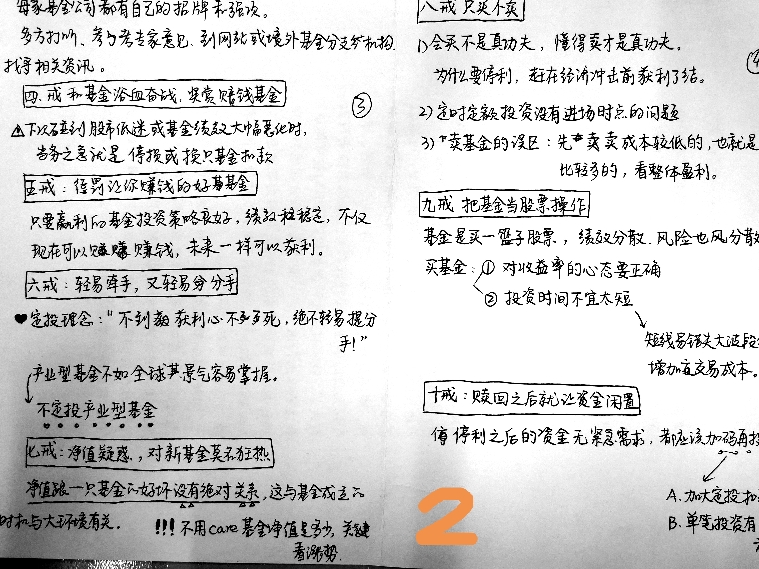 每家基金公司都有自己的招牌和强项。
多方打听、参考专家意见、到网站或境外基金分支机构
找寻相关资讯。
四.戒 和基金浴血奋战,奖赏赔钱基金
③
⚠下次碰到股市低迷或基金绩效大幅恶化时,
当务之急就是停损或换只基金扣款
五戒:惩罚让你赚钱的好基金
只要赢利的基金投资策略良好,绩效稳定,不仅
现在可以赚钱,未来一样可以获利。
六戒:轻易牵手,又轻易分手
♥定投理念:"不到获利心不死,绝不轻易提分
手!"
产业型基金不如全球景气容易掌握。
不定投产业型基金
七戒:净值疑惑,对新基金莫名狂热
净值跟一只基金的好坏没有绝对关系,这与基金成立的
时机与大环境有关。
!!!不用care基金净值是多少,关键
看涨势.
八戒 只买不卖
1)会买不是真功夫,懂得卖才是真功夫。
为什么要停利,赶在经济冲击前获利了结。
2)定时定额投资没有进场时点的问题
3)卖基金的误区:先卖卖成本较低的,也就是
比较多的,看整体盈利。
九戒 把基金当股票操作
基金是买一篮子股票,绩效分散.风险也风分散
买基金:① 对收益率的心态要正确
② 投资时间不宜太短
短线易错失大波段
增加交易成本。
十戒:赎回之后就让资金闲置
停利之后的资金无紧急需求,都应该加码再投
A.加大定投扣
B.单笔投资有
2